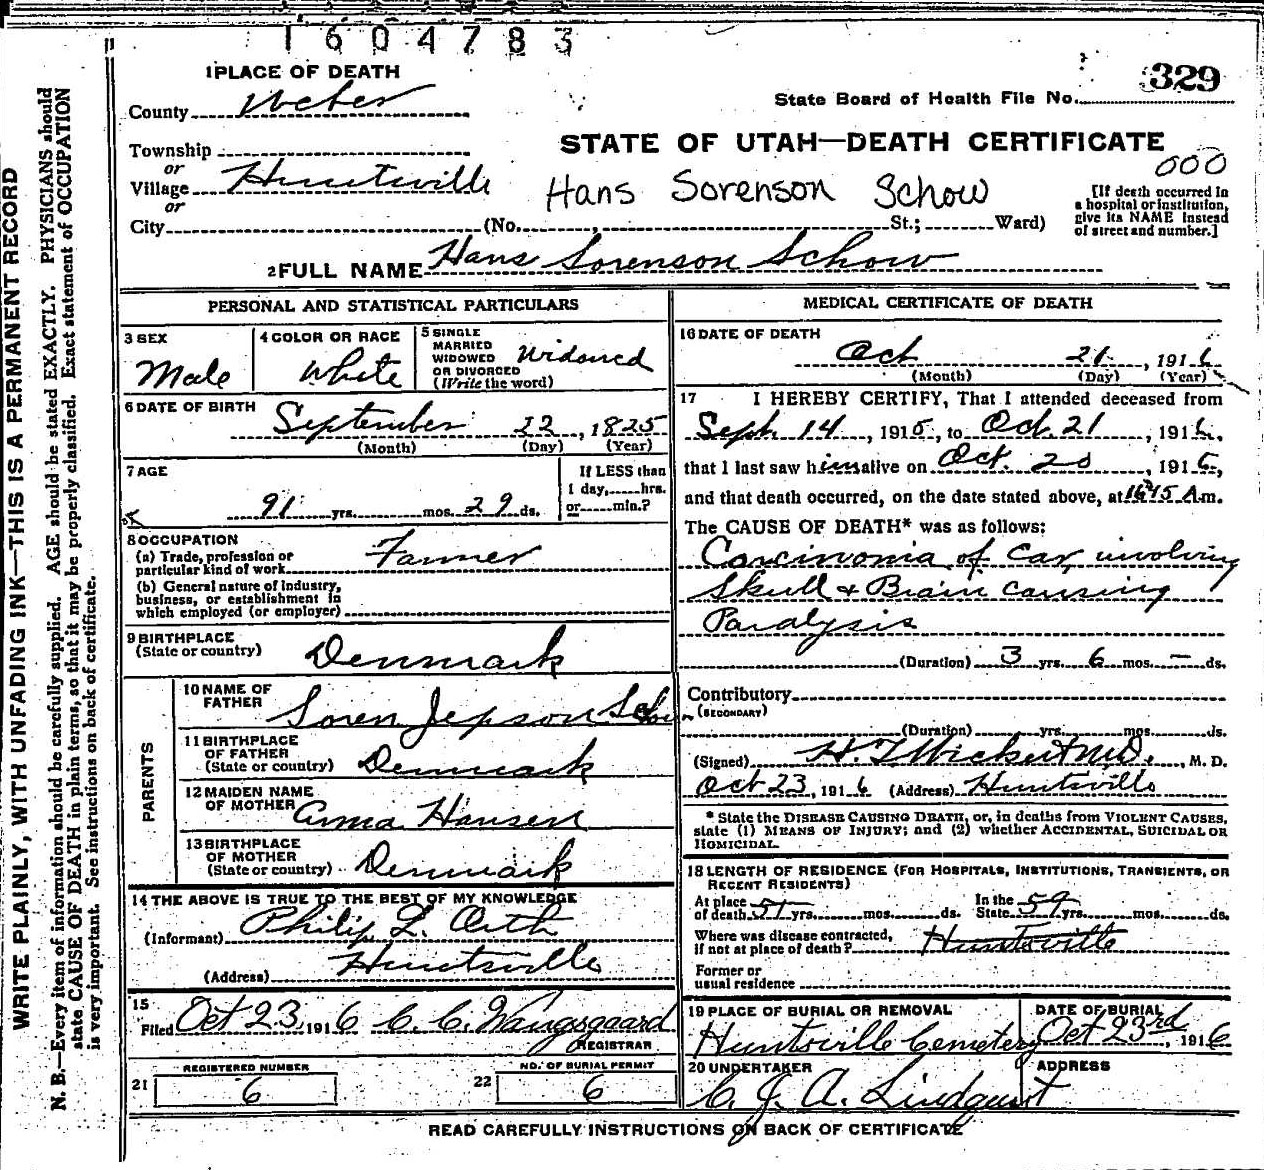 1604783
1 PLACE OF DEATH
329
County Weber
State Board of Health File No.
Township
STATE OF UTAH—DEATH CERTIFICATE
or
000
Village Huntsville
Hans Sorenson Schow
[If death occurred in
a hospital or institution,
give its NAME instead
of street and number.]
or
City (No. , St.; Ward)
2 FULL NAME Hans Sorenson Schow
PERSONAL AND STATISTICAL PARTICULARS
3 SEX
Male
4 COLOR OR RACE
White
5 SINGLE
MARRIED
WIDOWED
OR DIVORCED
(Write the word)
Widowed
6 DATE OF BIRTH
September 22, 1825
(Month) (Day) (Year)
7 AGE
91 yrs. mos. 29 ds.
If LESS than
1 day, hrs.
or min.?
8 OCCUPATION
(a) Trade, profession or
particular kind of work Farmer
(b) General nature of industry,
business, or establishment in
which employed (or employer)
9 BIRTHPLACE
(State or country) Denmark
PARENTS
10 NAME OF
FATHER Soren Jepson Schow
11 BIRTHPLACE
OF FATHER
(State or country) Denmark
12 MAIDEN NAME
OF MOTHER Anna Hansen
13 BIRTHPLACE
OF MOTHER
(State or country) Denmark
14 THE ABOVE IS TRUE TO THE BEST OF MY KNOWLEDGE
(Informant) Philip L. Orth
(Address) Huntsville
15
Filed Oct 23, 1916 C. C. Wangsgaard
REGISTRAR
REGISTERED NUMBER
21 6
NO. OF BURIAL PERMIT
22 6
MEDICAL CERTIFICATE OF DEATH
16 DATE OF DEATH
Oct 21, 1916
(Month) (Day) (Year)
17 I HEREBY CERTIFY, That I attended deceased from
Sept. 14, 1915, to Oct. 21, 1916,
that I last saw him alive on Oct. 20, 1916,
and that death occurred, on the date stated above, at A m.
The CAUSE OF DEATH* was as follows:
Carcinomia of Ear, involving
Skull & Brain causing
Paralysis
(Duration) 3 yrs. 6 mos. — ds.
Contributory
(SECONDARY)
(Duration) yrs. mos. ds.
(Signed) M.D., M. D.
Oct 23, 1916 (Address) Huntsville
* State the DISEASE CAUSING DEATH, or, in deaths from VIOLENT CAUSES,
state (1) MEANS OF INJURY; and (2) whether ACCIDENTAL, SUICIDAL OR
HOMICIDAL.
18 LENGTH OF RESIDENCE (FOR HOSPITALS, INSTITUTIONS, TRANSIENTS, OR
RECENT RESIDENTS)
At place
of death 57 yrs. mos. ds.
In the
State 59 yrs. mos. ds.
Where was disease contracted,
if not at place of death? Huntsville
Former or
usual residence
19 PLACE OF BURIAL OR REMOVAL
Huntsville Cemetery
DATE OF BURIAL
Oct 23rd, 1916
20 UNDERTAKER
C. J. A. Lindquist
ADDRESS
READ CAREFULLY INSTRUCTIONS ON BACK OF CERTIFICATE
WRITE PLAINLY, WITH UNFADING INK—THIS IS A PERMANENT RECORD
N. B.—Every item of information should be carefully supplied. AGE should be stated EXACTLY. PHYSICIANS should
state CAUSE OF DEATH in plain terms, so that it may be properly classified. Exact statement of OCCUPATION
is very important. See instructions on back of certificate.